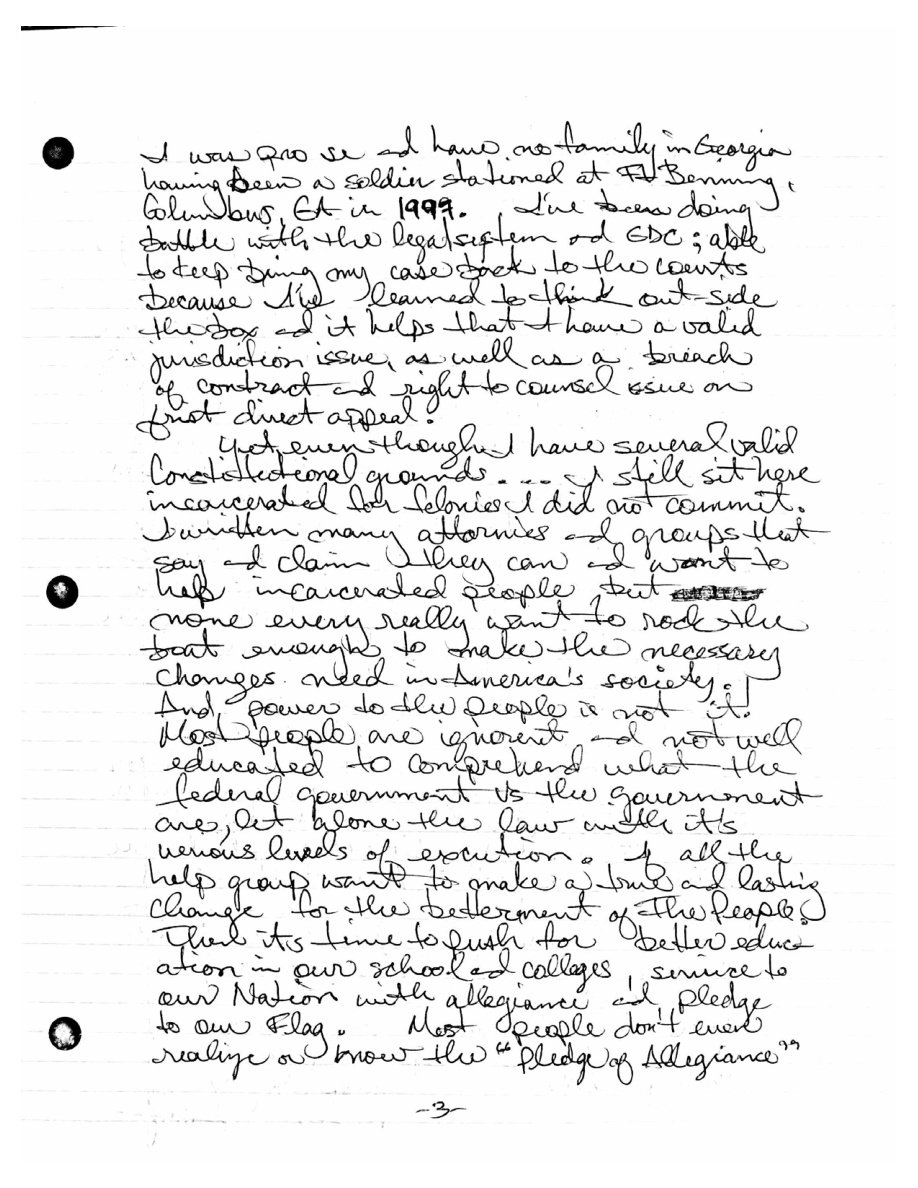 I was pro se and have no family in Georgia
having been a soldier stationed at Ft Benning,
Columbus, GA in 1999. I've been doing
battle with the legal system and GDC; able
to keep bring my case back to the courts
because I've learned to think out-side
the box and it helps that I have a valid
jurisdiction issue, as well as a breach
of contract and right to counsel issue on
first direct appeal.
Yet even though I have several valid
Constitutional grounds.... I still sit here
incarcerated for felonies I did not commit.
I written many attornies and groups that
say and claim they can and want to
help incarcerated people, but
none every really want to rock the
boat enough to make the necessary
changes need in America's society.
And, power to the people is not it!
Most people are ignorent and not well
educated to comprehend what the
federal government vs the government
are, let alone the law with it's
verious levels of excution. If all the
help group want to make a true and lasting
change for the betterment of The People.
Then it's time to push for better educ-
ation in our school and colleges, service to
our Nation with allegiance and pledge
to our Flag. Most people don't even
realize or know the "Pledge of Allegiance"
-3-